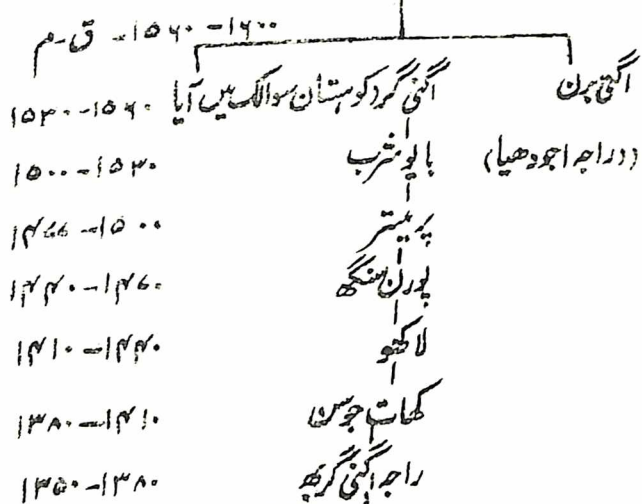 ۱۶۰۰-۱۵۶۰- ق-م
اگنی برن
اگنی گرد کوہستان سوالک میں آیا ۱۵۶۰-۱۵۳۰
(راجہ اجودھیا)
بایوشرب ۱۵۳۰-۱۵۰۰
پرمیتر ۱۵۰۰-
پورن سنگھ ۱۴۷۰-۱۴۴۰
لاکھتو ۱۴۴۰-۱۴۱۰
کھات جوسن ۱۴۱۰-۱۳۸۰
راجہ اگنی گربھ ۱۳۸۰-۱۳۵۰